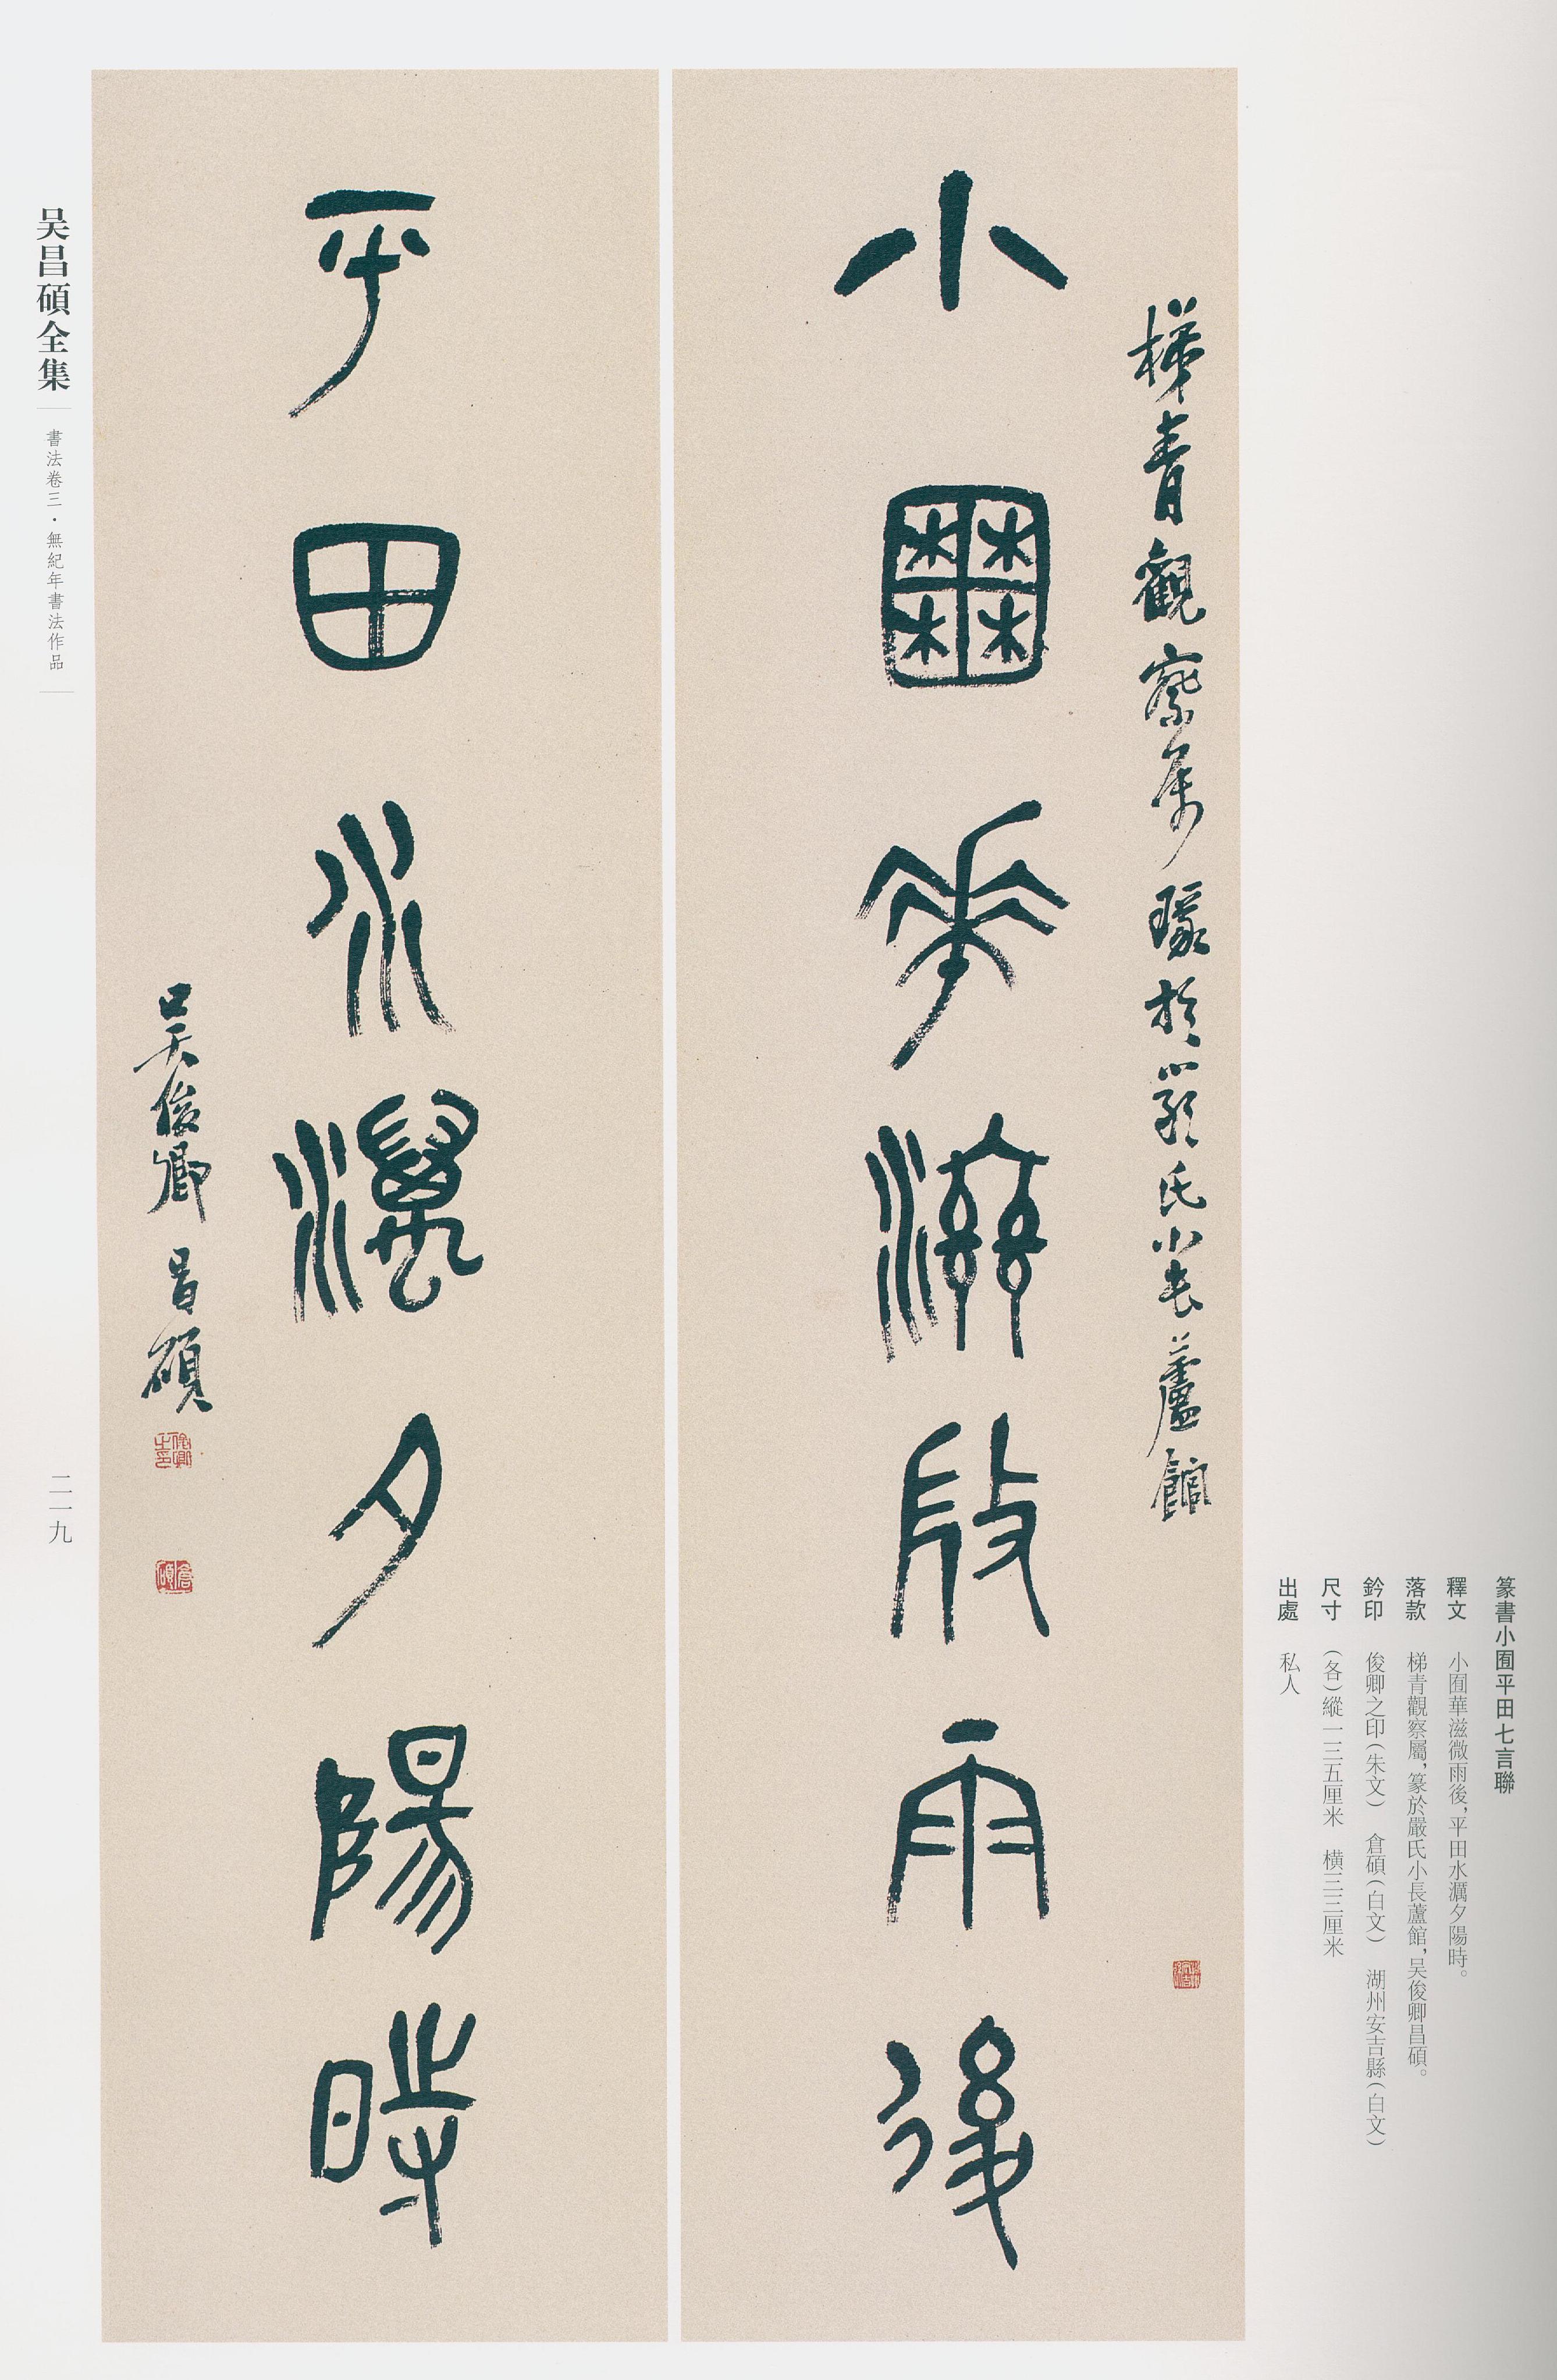 篆書小囿平田七言聯
釋文 小囿華滋微雨後,平田水濿夕陽時。
落款 梯青觀察屬,篆於嚴氏小長蘆館,吴俊卿昌碩。
鈐印 俊卿之印(朱文) 倉碩(白文) 湖州安吉縣(白文)
尺寸 (各)縱一三五厘米 横三三厘米
出處 私人
梯青觀察屬 篆於嚴氏小長蘆館
小囿華滋微雨後
平田水濿夕陽時
吴俊卿昌碩
俊卿之印
倉碩
吴昌碩全集
書法卷三·無紀年書法作品
二一九